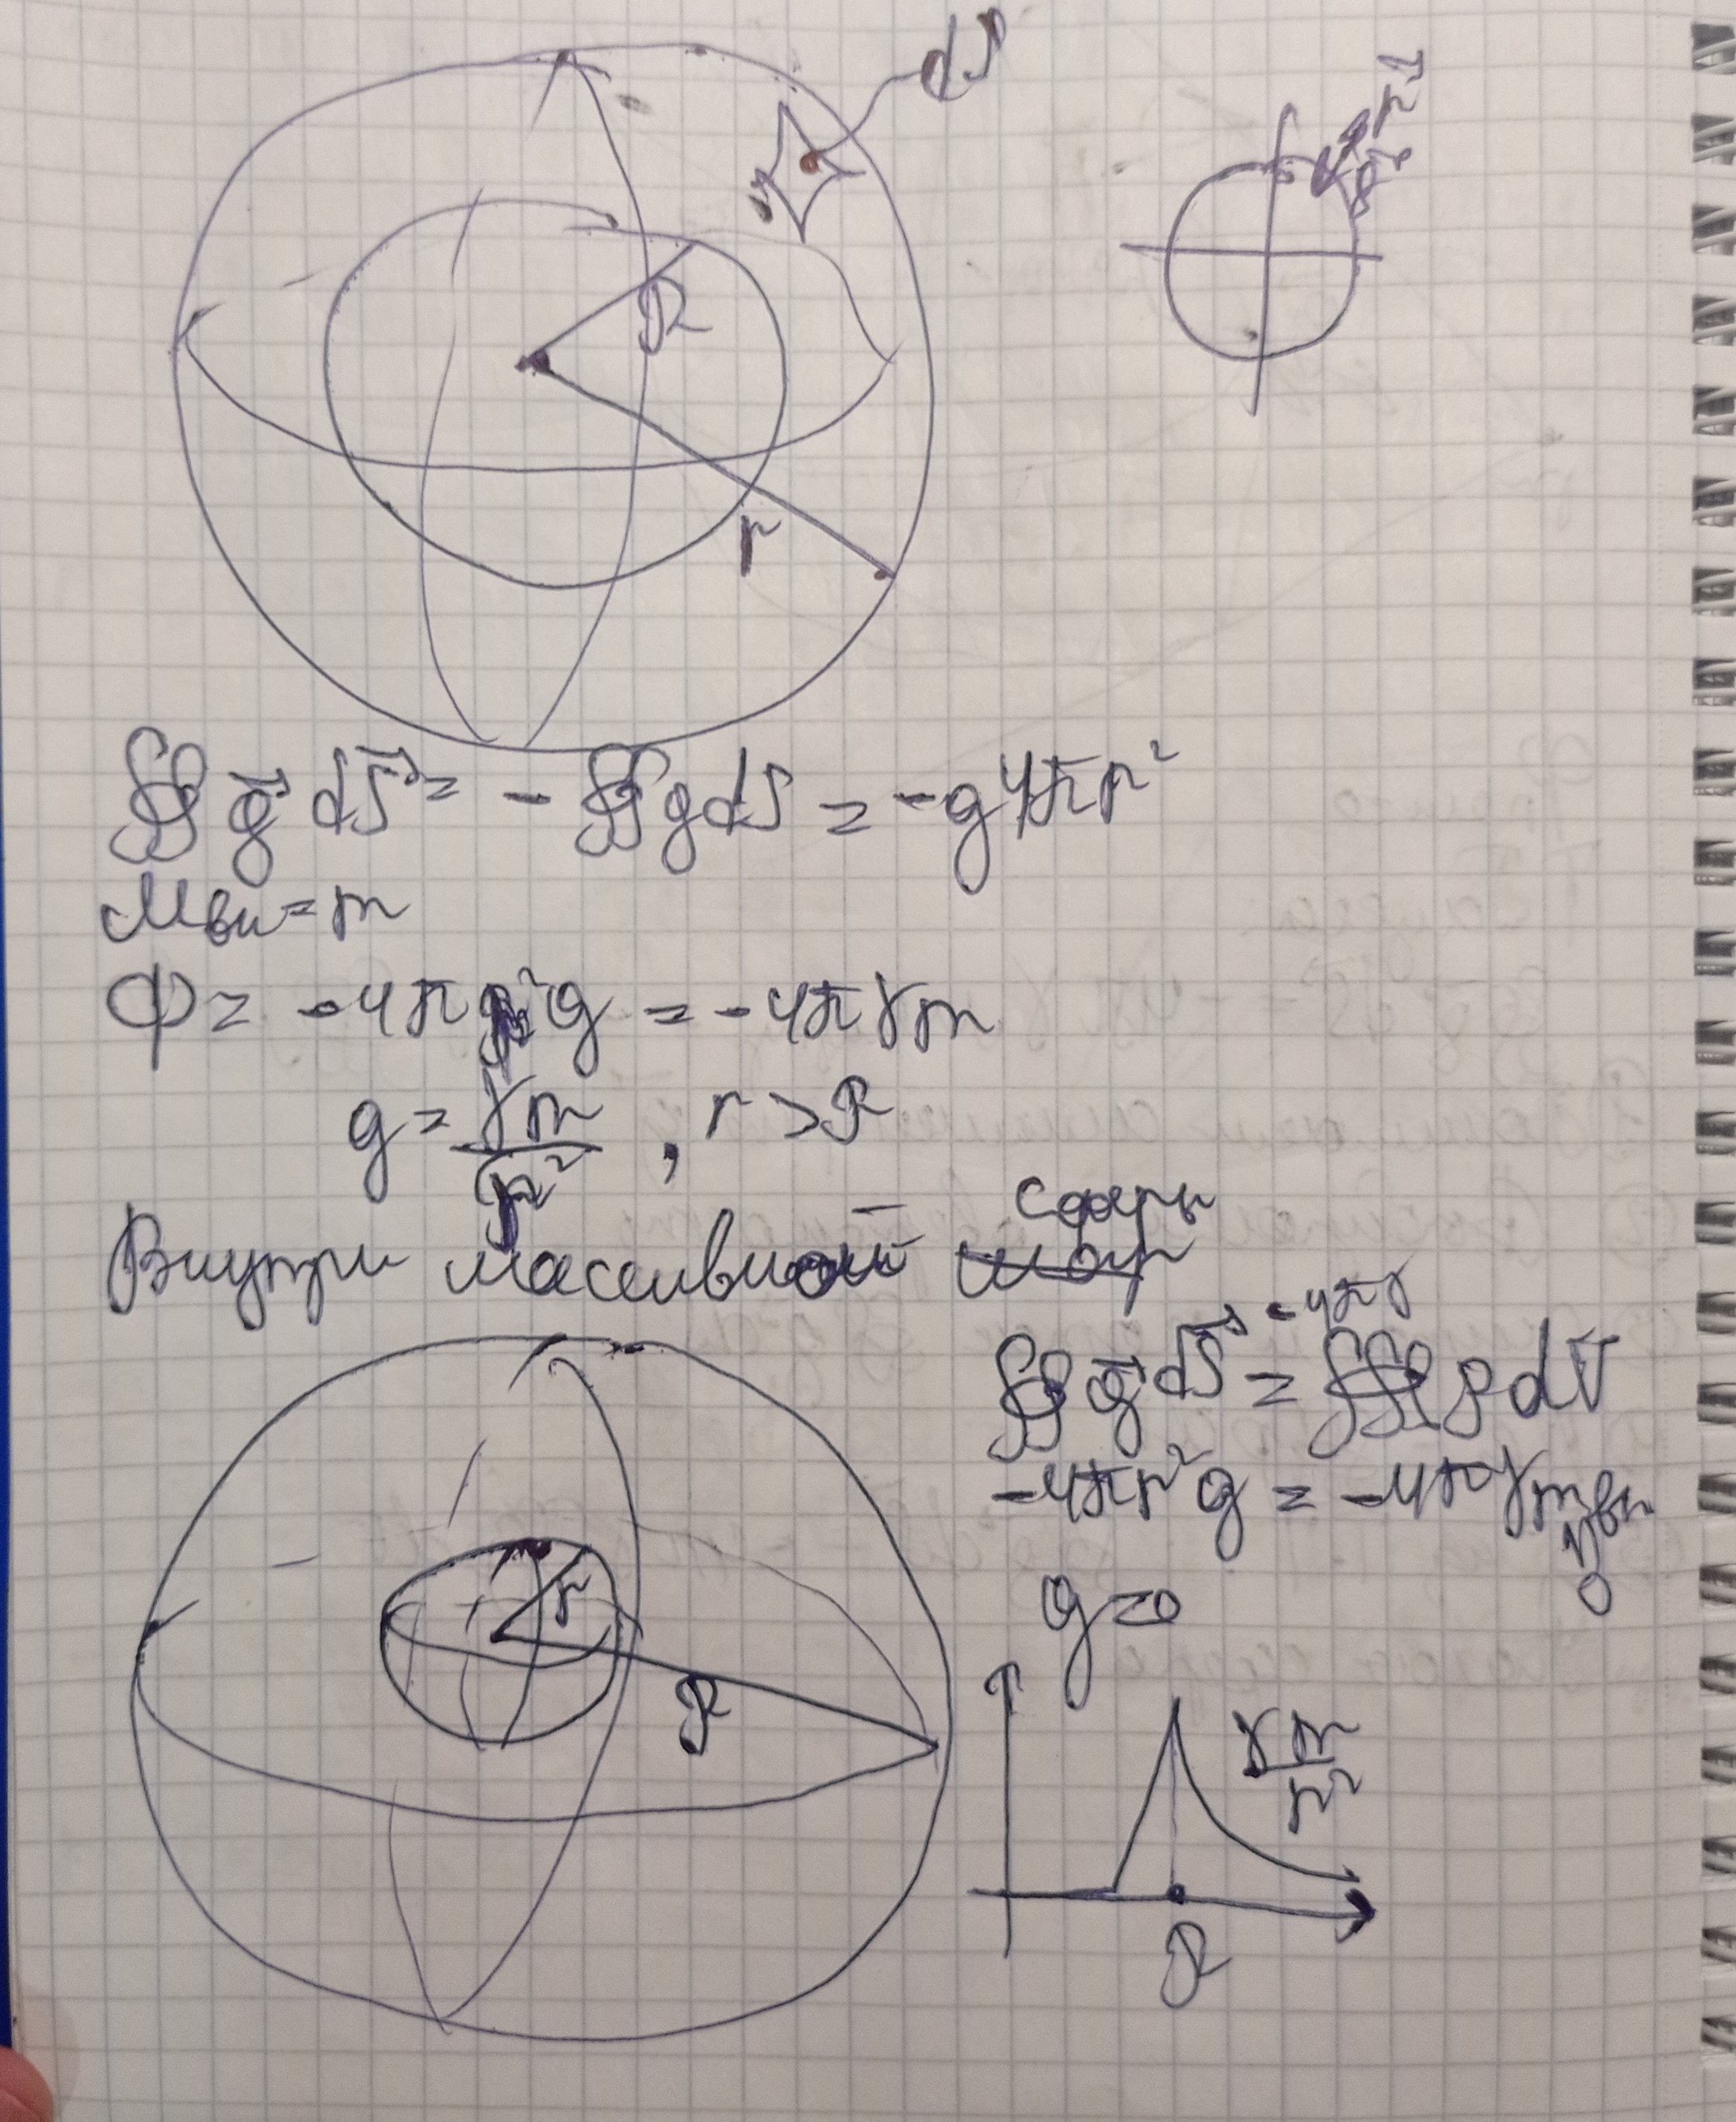 dS
R
r
∯ g⃗ dS⃗ = - ∯ g dS = -g4πr²
Mвн = m
Φ = -4πr²g = -4πγm
g = γm/r² , r > R
Внутри массивной сферы
r
R
∯ g⃗ dS⃗ = -4πγ ∭ ρdV
-4πr²g = -4πγmвн
0
g = 0
γm/r²
R